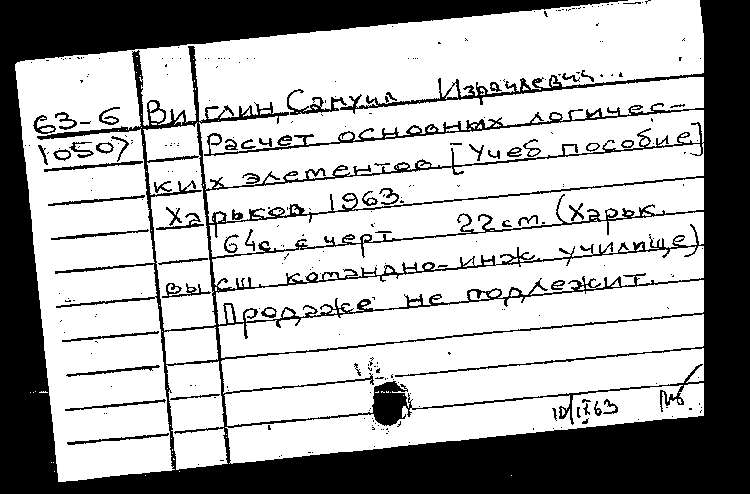 63-6 Виглин, Самуил Израилевич...
(050) Расчет основных логичес-
ких элементов. [Учеб. пособие]
Харьков, 1963.
64с. с черт. 22см. (Харьк.
высш. командно-инж. училище)
Продаже не подлежит.